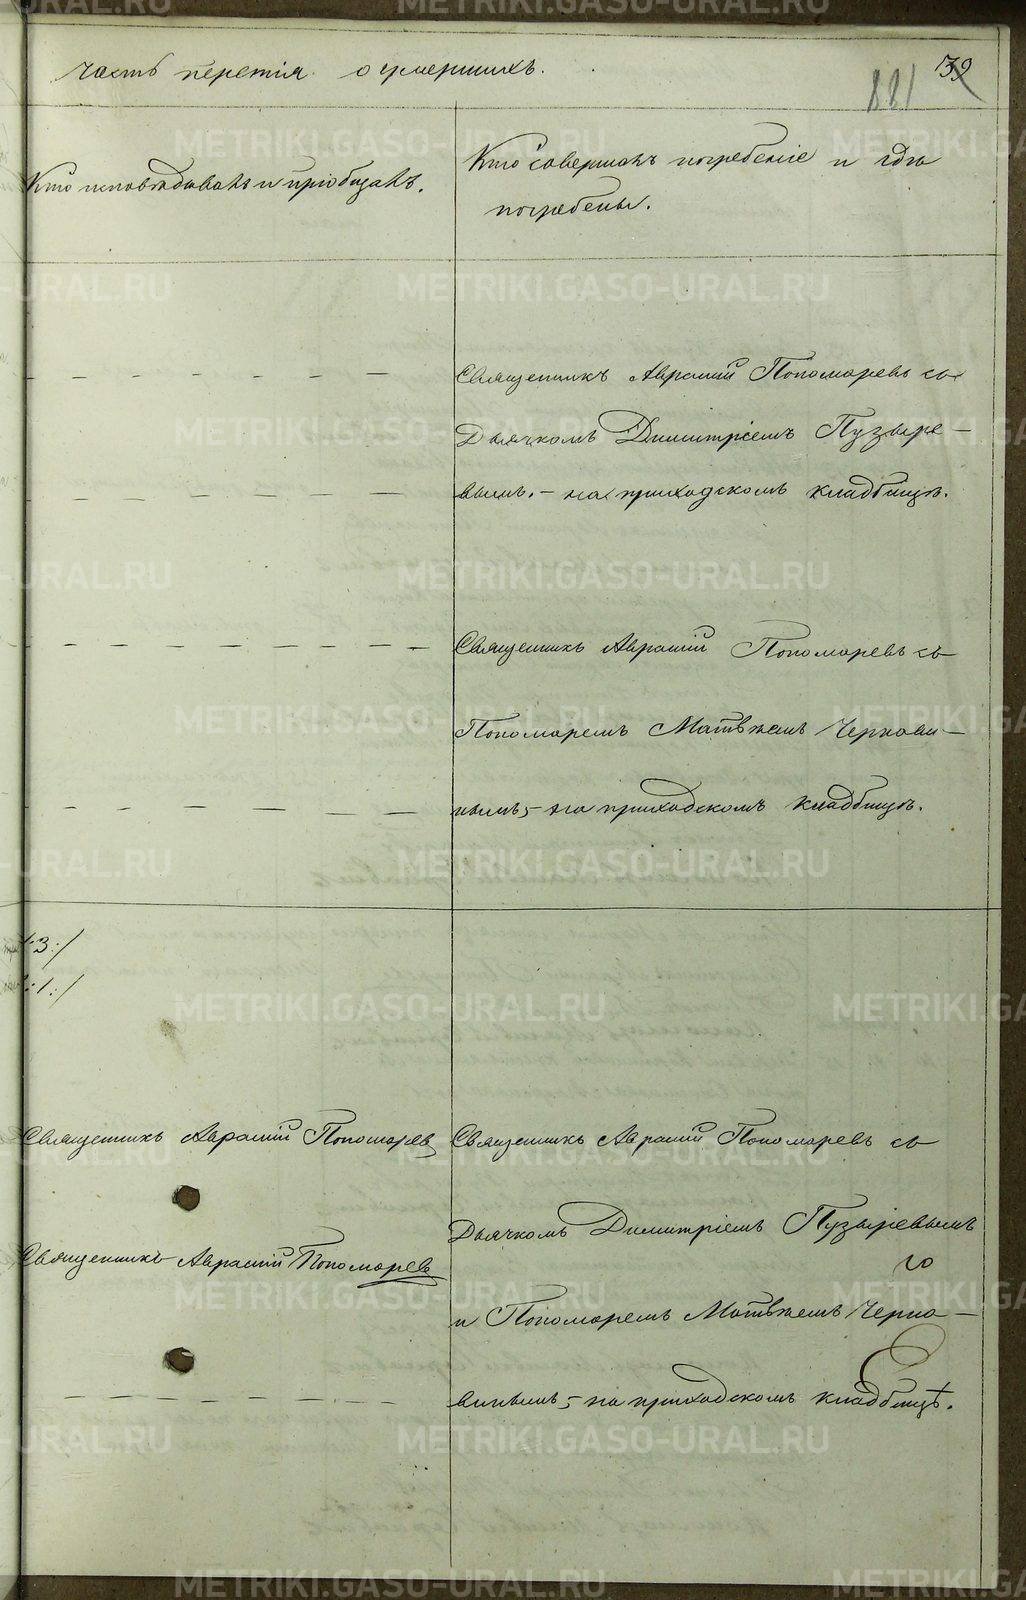 Часть третія о умершихъ.
39
881
Кто исповѣдывалъ и пріобщалъ.
Кто совершалъ погребеніе и гдѣ
погребены.
Священникъ Аврамій Пономаревъ съ
Дьячкомъ Димитріемъ Пузыре-
вымъ. - на приходскомъ кладбищѣ.
Священникъ Аврамій Пономаревъ съ
Пономаремъ Матвѣемъ Чернави-
нымъ, - на приходскомъ кладбищѣ.
:3:/
:1:/
Священникъ Аврамій Пономаревъ
Священникъ Аврамій Пономаревъ
Священникъ Аврамій Пономаревъ съ
Дьячкомъ Димитріемъ Пузыревымъ
и Пономаремъ Матвѣемъ Черна-
винымъ, - на приходскомъ кладбищѣ.
METRIKI.GASO-URAL.RU